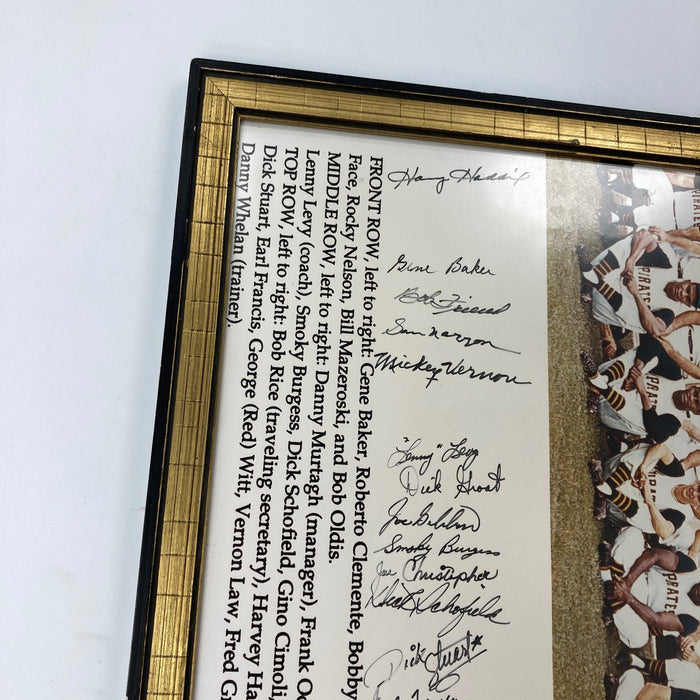 FRONT ROW, left to right: Gene Baker, Roberto Clemente, Bobby
Face, Rocky Nelson, Bill Mazeroski, and Bob Oldis.
MIDDLE ROW, left to right: Danny Murtagh (manager), Frank O
Lenny Levy (coach), Smoky Burgess, Dick Schofield, Gino Cimoli
TOP ROW, left to right: Bob Rice (traveling secretary), Harvey Ha
Dick Stuart, Earl Francis, George (Red) Witt, Vernon Law, Fred G
Danny Whelan (trainer).
Harvey Haddix
Gene Baker
Bob Friend
Sam Narron
Mickey Vernon
"Lenny" Levy
Dick Groat
Joe Gibbon
Smoky Burgess
Joe Christopher
Dick Schofield
Dick Stuart
PIRATES
PIRATE
PIRATE
PIRATE
PIRATES